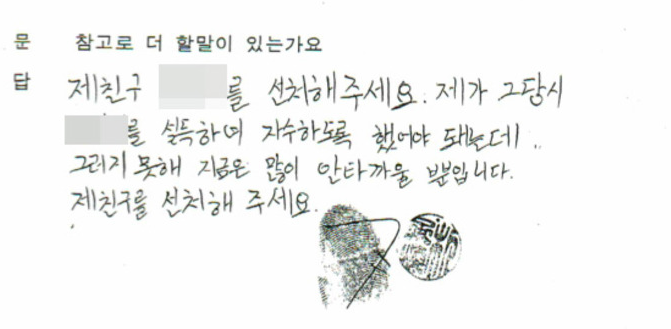 문 참고로 더 할말이 있는가요
답 제친구 를 선처해주세요. 제가 그당시
를 설득하며 자수하도록 했어야 돼는데..
그러지 못해 지금은 많이 안타까울 뿐입니다.
제친구를 선처해 주세요.